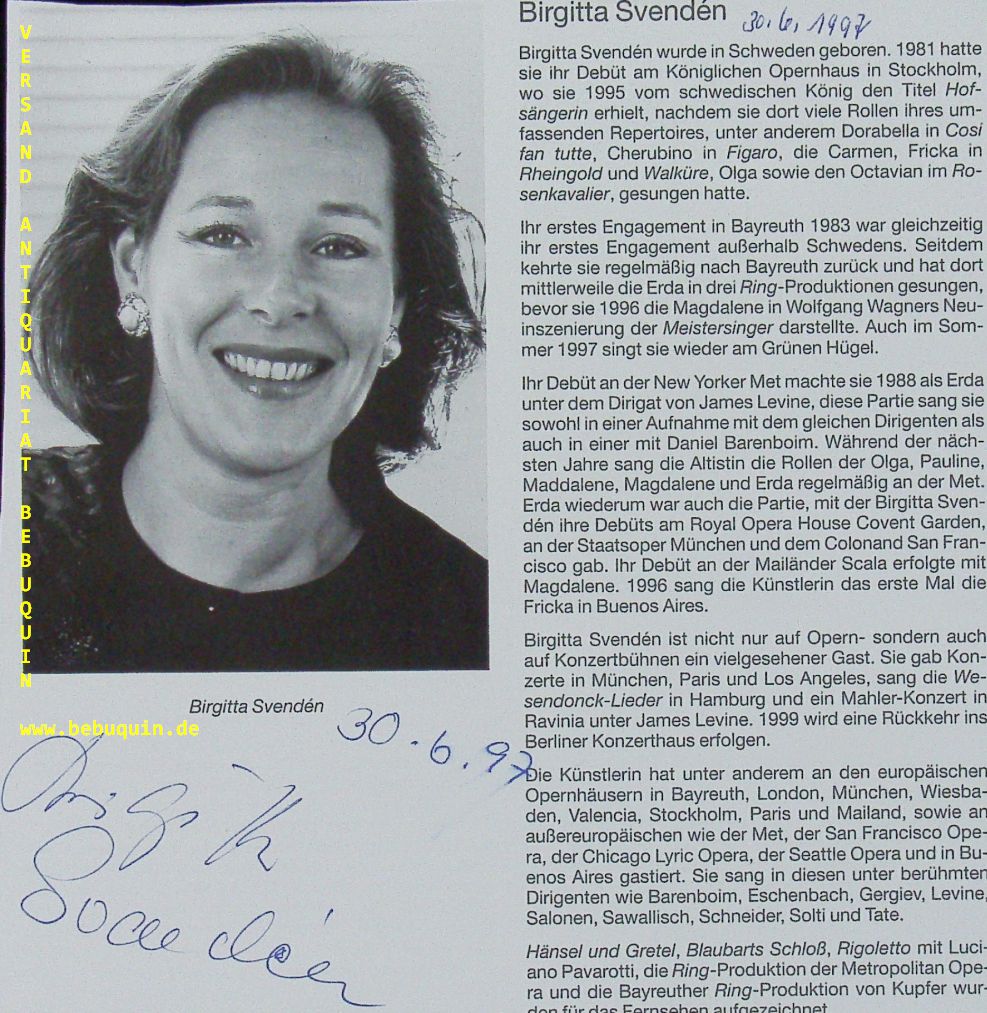 VERSAND ANTIQUARIAT BEBUQUIN
www.bebuquin.de
Birgitta Svendén
30.6.97
Birgitta
Svendén
Birgitta Svendén
30.6.1997
Birgitta Svendén wurde in Schweden geboren. 1981 hatte
sie ihr Debüt am Königlichen Opernhaus in Stockholm,
wo sie 1995 vom schwedischen König den Titel Hof-
sängerin erhielt, nachdem sie dort viele Rollen ihres um-
fassenden Repertoires, unter anderem Dorabella in Cosi
fan tutte, Cherubino in Figaro, die Carmen, Fricka in
Rheingold und Walküre, Olga sowie den Octavian im Ro-
senkavalier, gesungen hatte.
Ihr erstes Engagement in Bayreuth 1983 war gleichzeitig
ihr erstes Engagement außerhalb Schwedens. Seitdem
kehrte sie regelmäßig nach Bayreuth zurück und hat dort
mittlerweile die Erda in drei Ring-Produktionen gesungen,
bevor sie 1996 die Magdalene in Wolfgang Wagners Neu-
inszenierung der Meistersinger darstellte. Auch im Som-
mer 1997 singt sie wieder am Grünen Hügel.
Ihr Debüt an der New Yorker Met machte sie 1988 als Erda
unter dem Dirigat von James Levine, diese Partie sang sie
sowohl in einer Aufnahme mit dem gleichen Dirigenten als
auch in einer mit Daniel Barenboim. Während der näch-
sten Jahre sang die Altistin die Rollen der Olga, Pauline,
Maddalene, Magdalene und Erda regelmäßig an der Met.
Erda wiederum war auch die Partie, mit der Birgitta Sven-
dén ihre Debüts am Royal Opera House Covent Garden,
an der Staatsoper München und dem Colonand San Fran-
cisco gab. Ihr Debüt an der Mailänder Scala erfolgte mit
Magdalene. 1996 sang die Künstlerin das erste Mal die
Fricka in Buenos Aires.
Birgitta Svendén ist nicht nur auf Opern- sondern auch
auf Konzertbühnen ein vielgesehener Gast. Sie gab Kon-
zerte in München, Paris und Los Angeles, sang die We-
sendonck-Lieder in Hamburg und ein Mahler-Konzert in
Ravinia unter James Levine. 1999 wird eine Rückkehr ins
Berliner Konzerthaus erfolgen.
Die Künstlerin hat unter anderem an den europäischen
Opernhäusern in Bayreuth, London, München, Wiesba-
den, Valencia, Stockholm, Paris und Mailand, sowie an
außereuropäischen wie der Met, der San Francisco Ope-
ra, der Chicago Lyric Opera, der Seattle Opera und in Bu-
enos Aires gastiert. Sie sang in diesen unter berühmten
Dirigenten wie Barenboim, Eschenbach, Gergiev, Levine,
Salonen, Sawallisch, Schneider, Solti und Tate.
Hänsel und Gretel, Blaubarts Schloß, Rigoletto mit Luci-
ano Pavarotti, die Ring-Produktion der Metropolitan Ope-
ra und die Bayreuther Ring-Produktion von Kupfer wur-
den für das Fernsehen aufgezeichnet